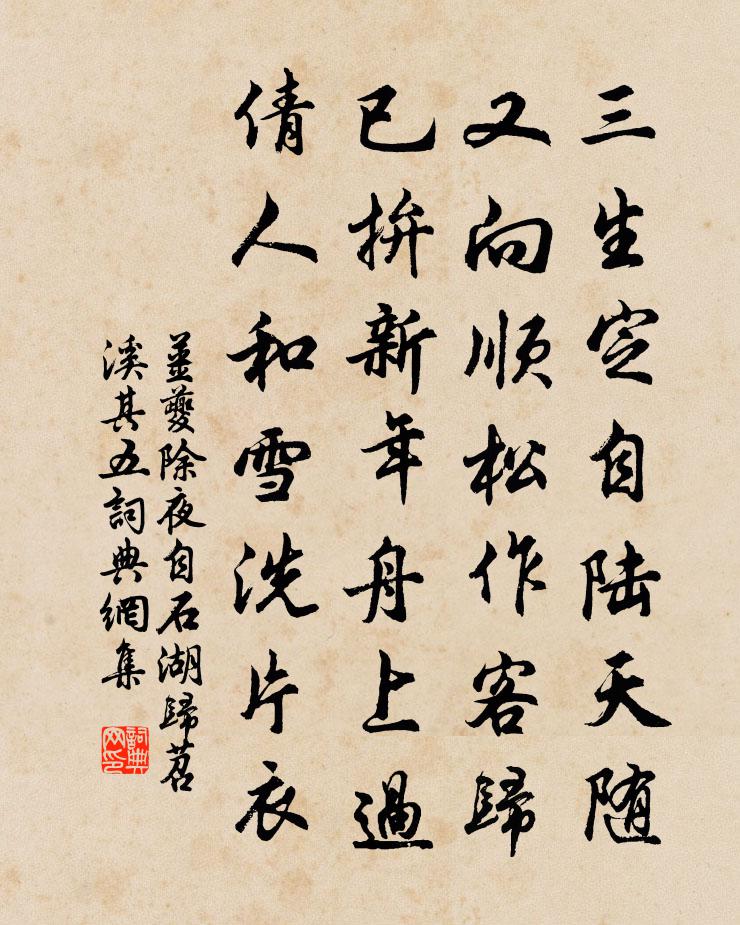 三生定自陆天随
又向顺松作客歸
已拚新年舟上過
倩人和雪洗片衣
薑夔除夜自石湖歸苕
溪其五詞典網集
詞典
网印